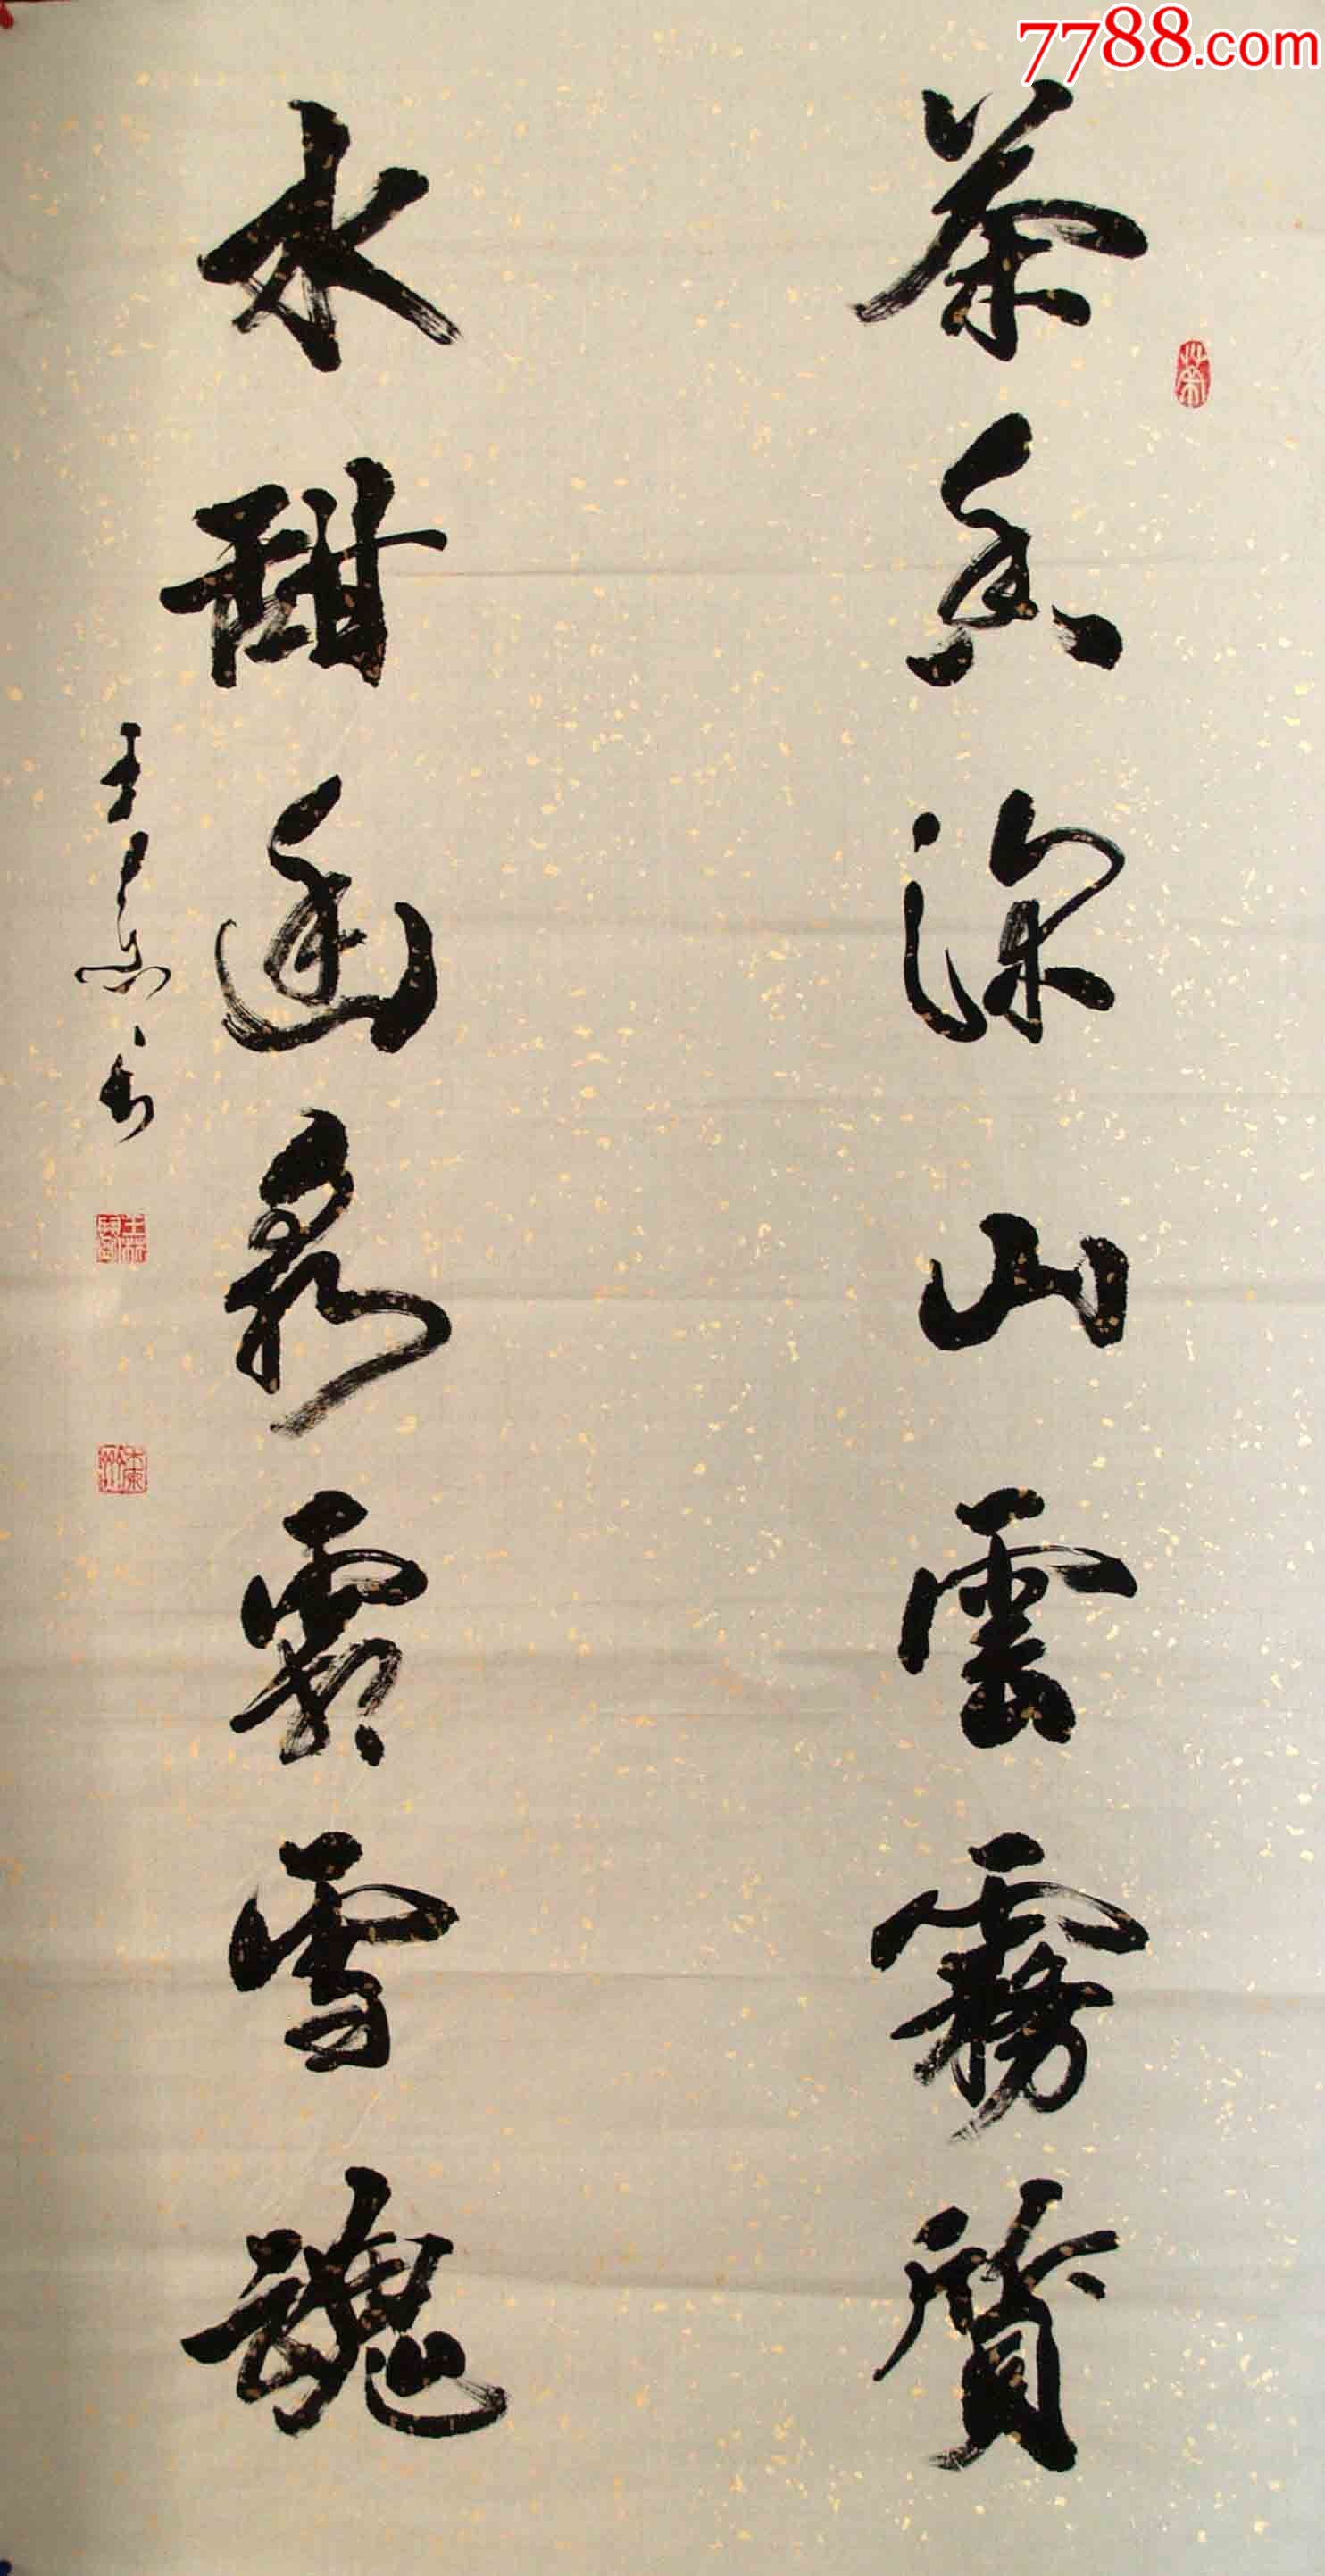 7788.com
茶香深山雲霧質
水甜幽泉霜雪魂
王